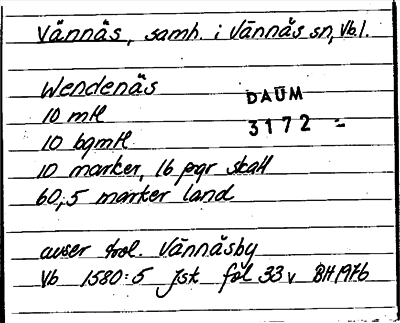 Vännäs, samh. i Vännäs sn, Vb l.
Wendenäs
DAUM
10 mtl
3172 -
10 bgmtl
10 marker, 16 pgr skatt
60,5 marker land
avser trol. Vännäsby
Vb 1580:5 Jsk fol 33 v BH 1976